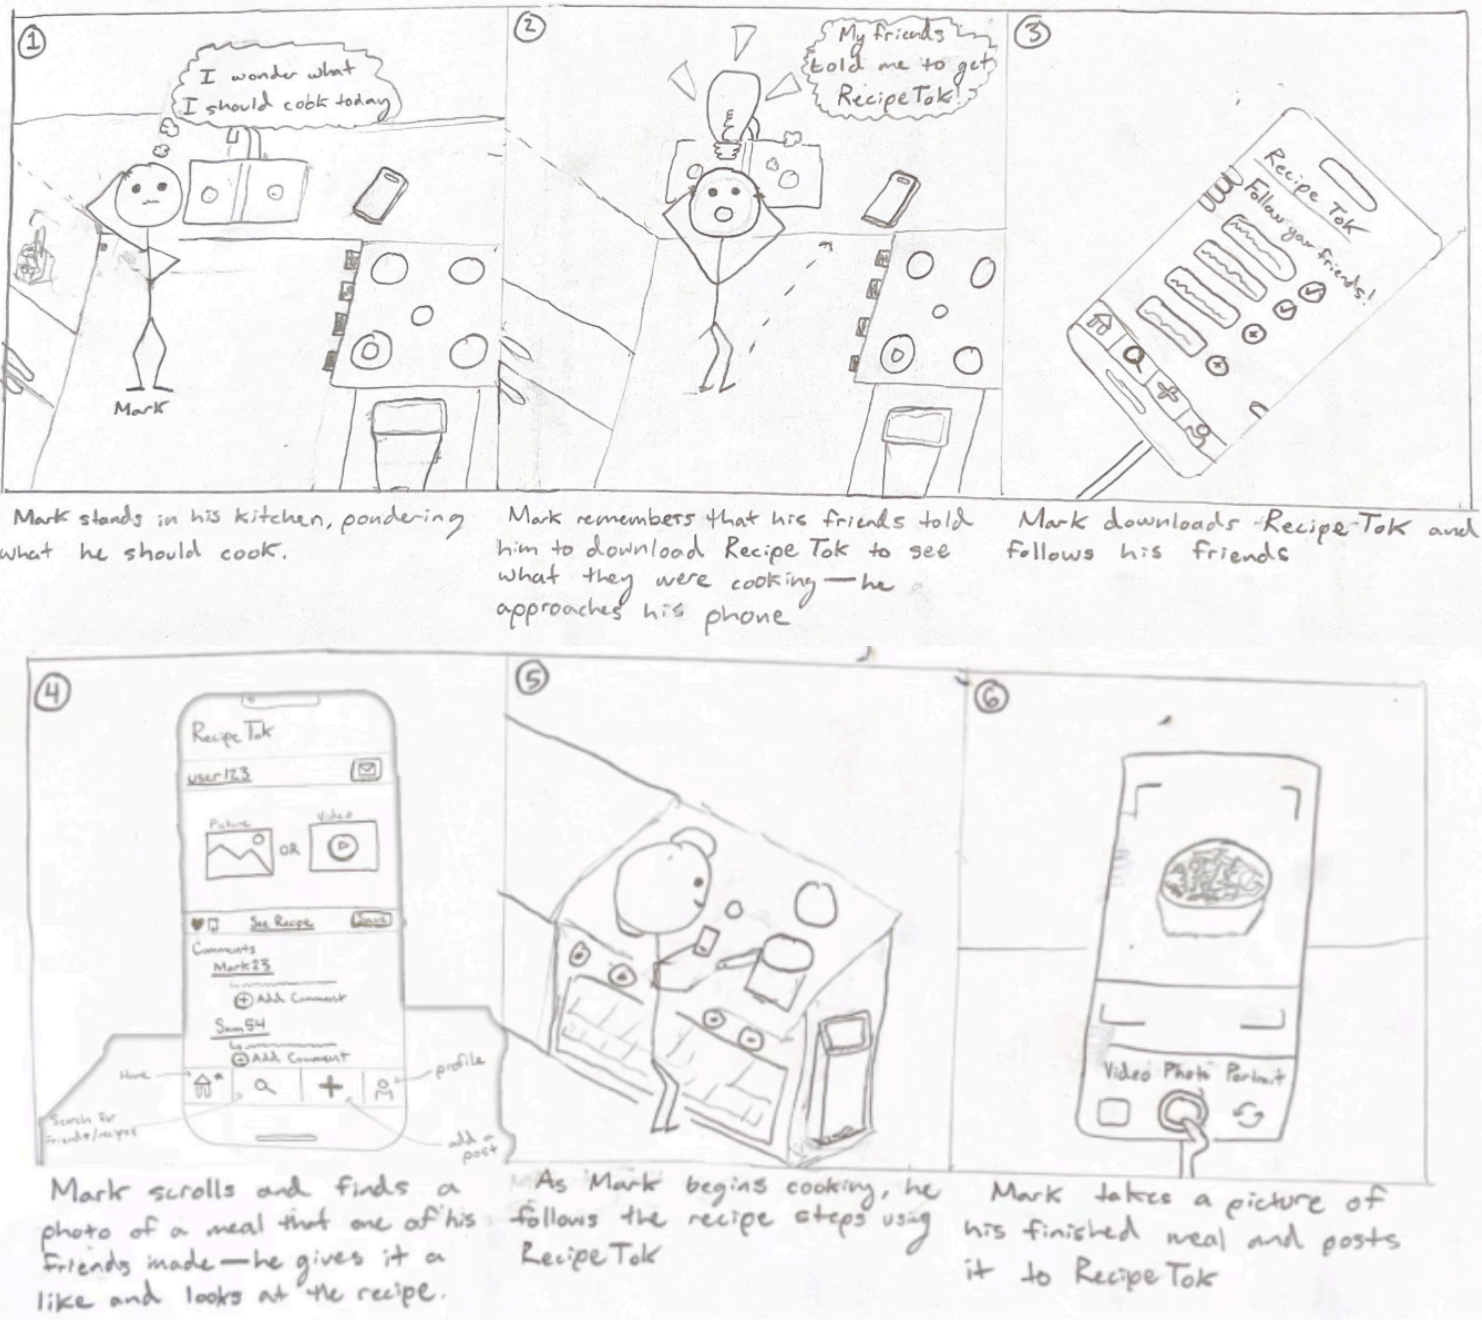 1
I wonder what
I should cook today
Mark
Mark stands in his kitchen, pondering
what he should cook.
2
My friends
told me to get
RecipeTok!
Mark remembers that his friends told
him to download Recipe Tok to see
what they were cooking—he
approaches his phone
3
Recipe Tok
Follow your friends!
Mark downloads Recipe Tok and
follows his friends
4
Recipe Tok
user123
Picture
OR
Video
See Recipe
Save
Comments
Mark23
Add Comment
Sam54
Add Comment
Home
profile
Search for
friends/recipes
add a
post
Mark scrolls and finds a
photo of a meal that one of his
friends made—he gives it a
like and looks at the recipe.
5
As Mark begins cooking, he
follows the recipe steps using
RecipeTok
6
Video Photo Portrait
Mark takes a picture of
his finished meal and posts
it to RecipeTok